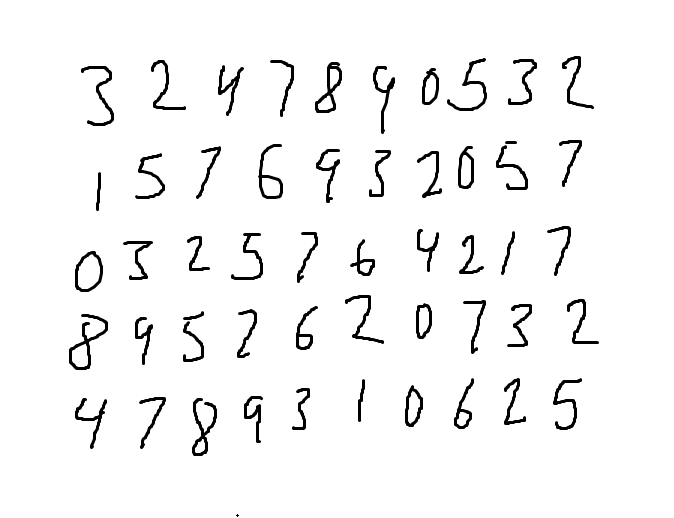 3 2 4 7 8 9 0 5 3 2
1 5 7 6 9 3 2 0 5 7
0 3 2 5 7 6 4 2 1 7
8 9 5 2 6 2 0 7 3 2
4 7 8 9 3 1 0 6 2 5